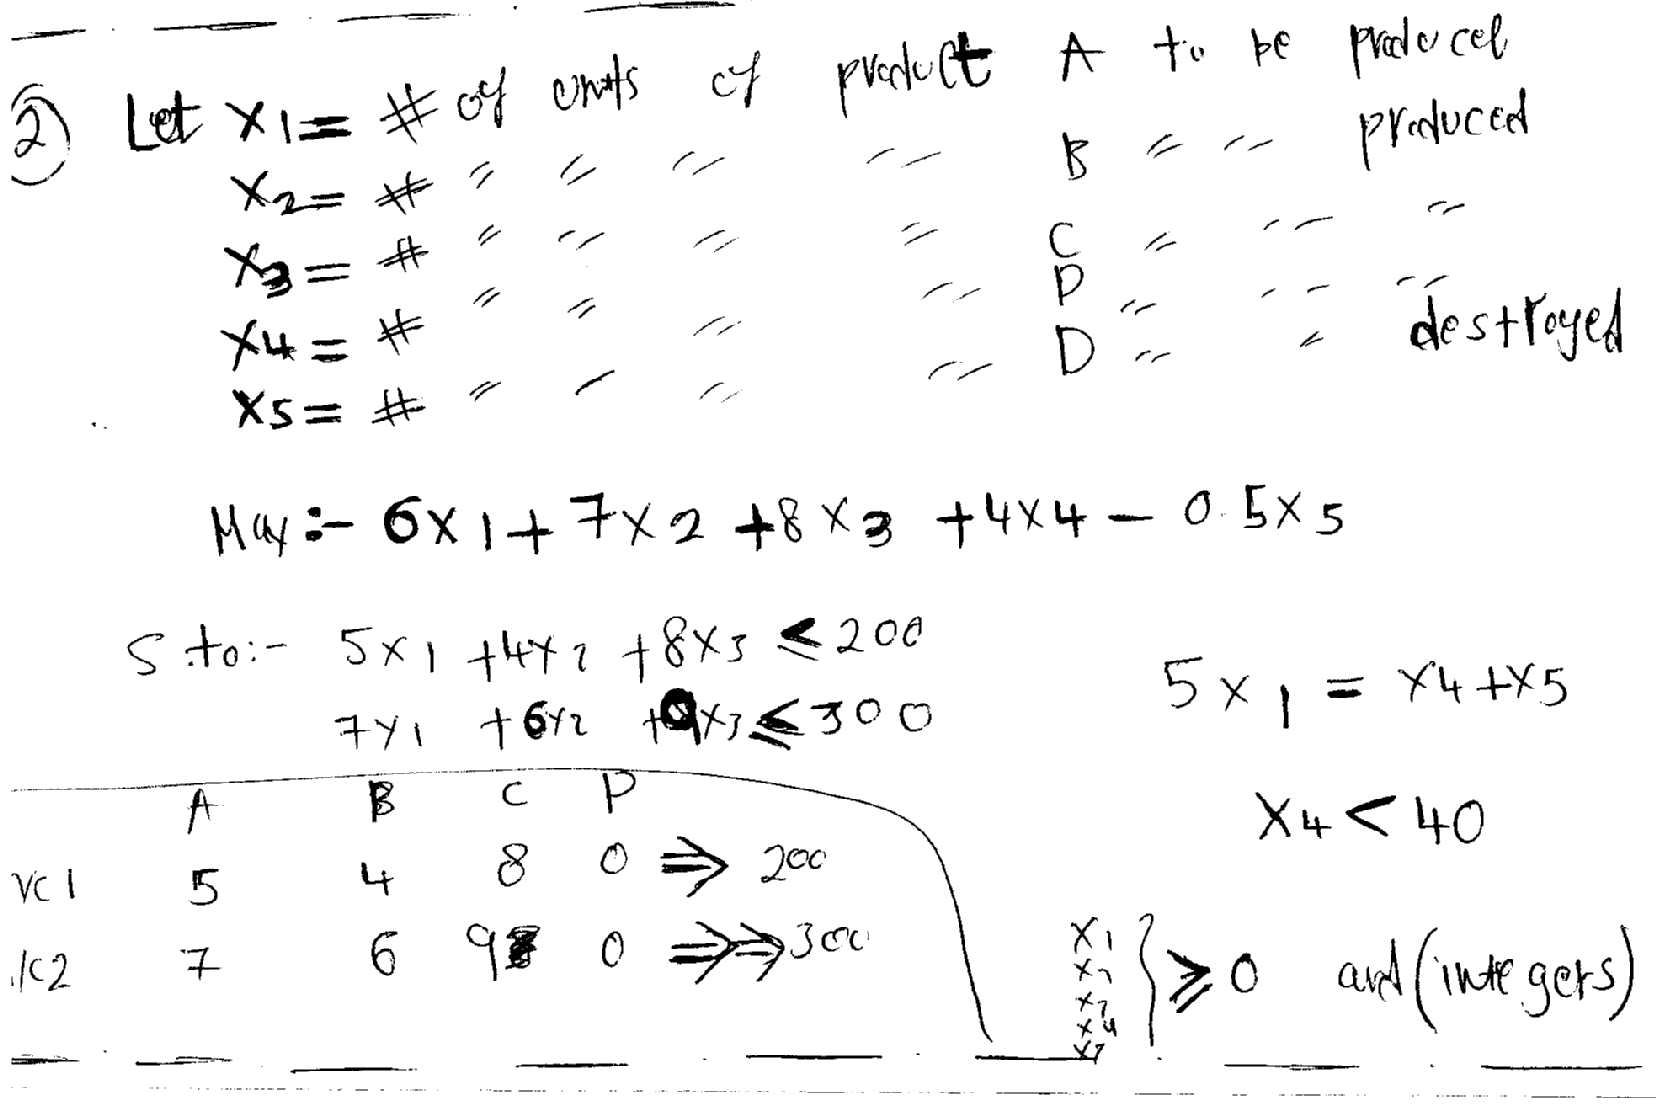 ② Let x1 = # of units of product A to be produced
x2 = # " " " " B " " produced
x3 = # " " " " C " " "
x4 = # " " " " P " " "
x5 = # " " " " D " " destroyed
Max :- 6x1 + 7x2 + 8x3 + 4x4 - 0.5x5
S.to:- 5x1 + 4x2 + 8x3 ≤ 200
7x1 + 6x2 + 9x3 ≤ 300
5x1 = x4 + x5
x4 < 40
A B C P
5 4 8 0 ⇒ 200
7 6 9 0 ⇒⇒ 300
x1
x2
x3
x4
x5
} ≥ 0 and (integers)